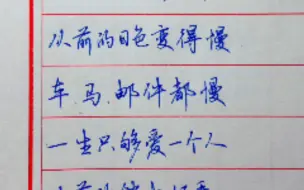 从前的日色变得慢
车、马、邮件都慢
一生只够爱一个人